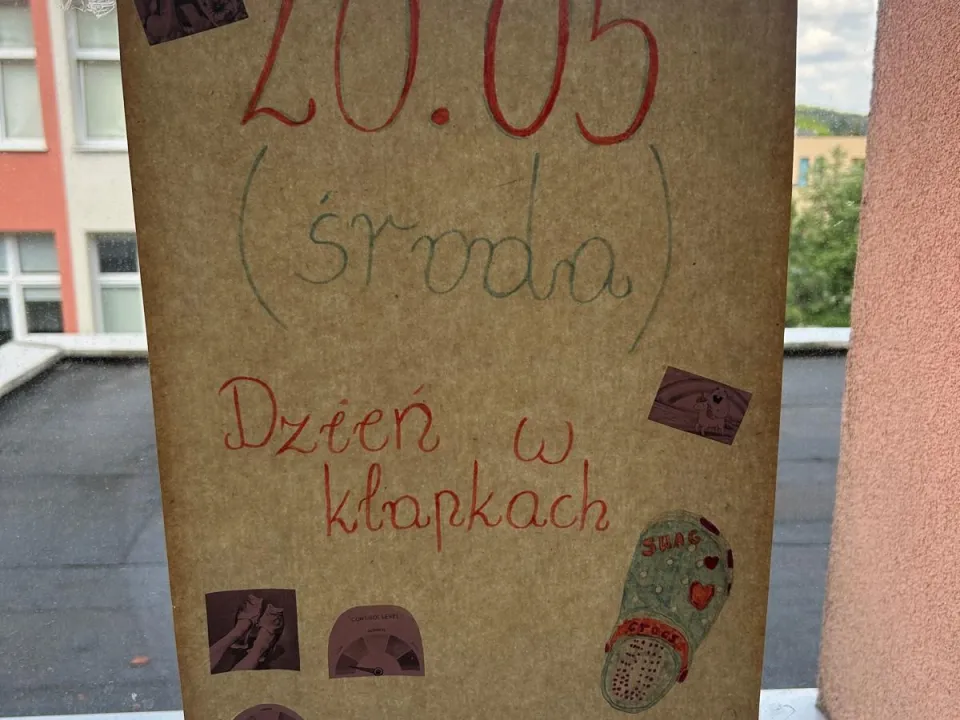 20.05
(środa)
Dzień w
klapkach
SWAG
crocs